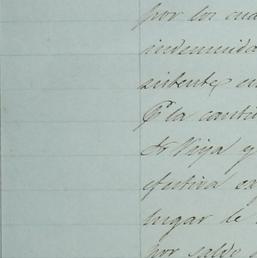 por los cua
indemnida
sistente en
la canti
Sr Veya y
efectiva ex
lugar de
por saldo